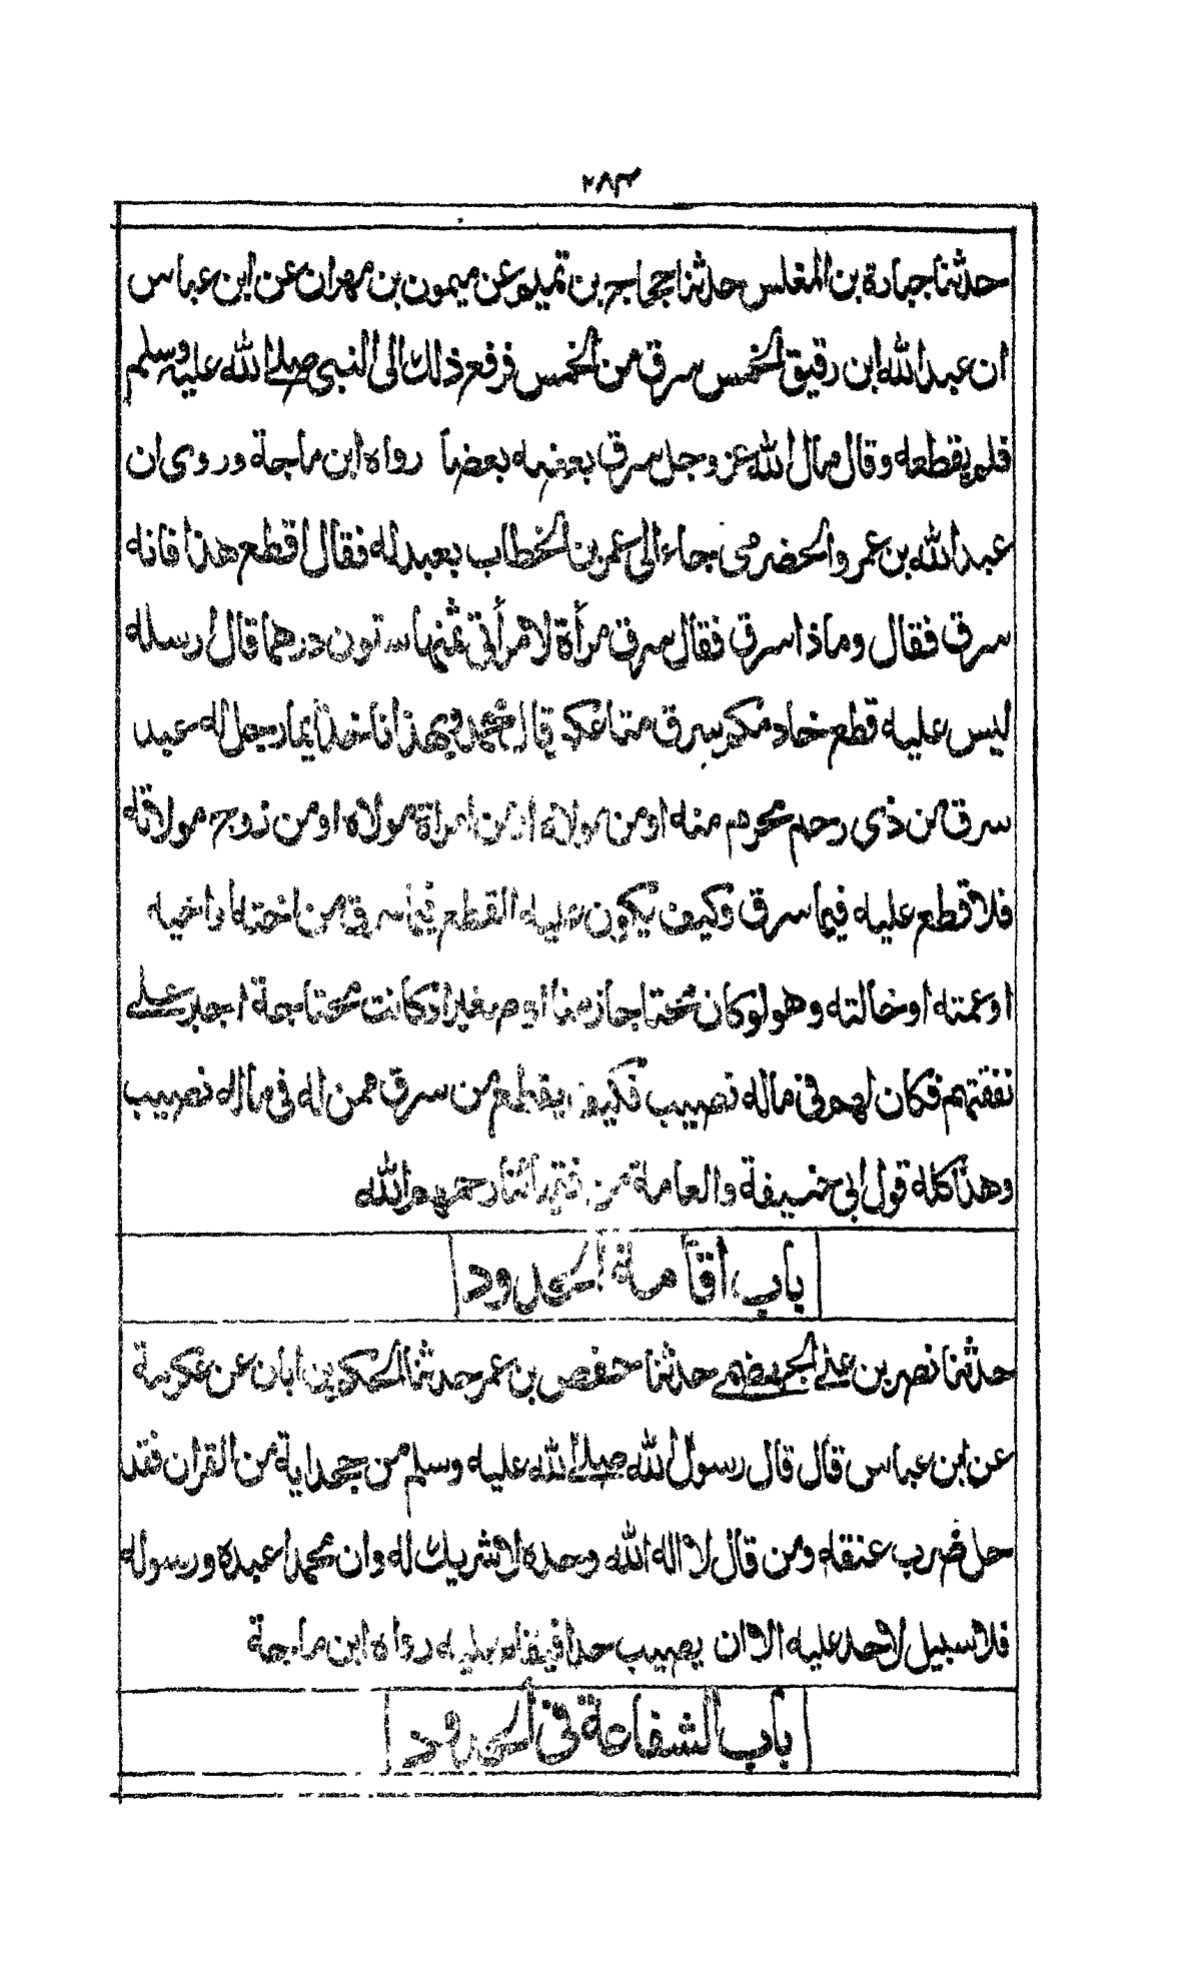 ٢٨٣
حدثنا جبارة بن المغلس حدثنا حجاج بن تميم عن ميمون بن مهران عن ابن عباس
ان عبدالله ابن رقيق الخمس سرق من الخمس فرفع ذلك الى النبى صلے الله عليه وسلم
فلم يقطعه وقال مال الله عز وجل سرق بعضه بعضا رواه ابن ماجة وروى ان
عبد الله بن عمرو الحضرمى جاء الى عمر بن الخطاب بعبد له فقال اقطع هذا فانه
سرق فقال وماذا سرق فقال سرق مرأة لامرأتى ثمنها ستون درهما قال ارسله
ليس عليه قطع خادمكم سرق متاعكم قال محمد وبهذا ناخذ ايما رجل له عبد
سرق من ذى رحم محرم منه او من مولاه او من امرأة مولاه او من زوج مولاته
فلا قطع عليه فيما سرق وكيف يكون عليه القطع فيما سرق من اخته او اخيه
او عمته او خالته وهو لو كان محتاجا زمنا او صغيرا او كانت محتاجة اجبر علے
نفقتهم فكان لهم فى ماله نصيب فكيف يقطع من سرق ممن له فى ماله نصيب
وهذا كله قول ابى حنيفة والعامة من فقهائنا رحمهم الله
باب اقامة الحدود
حدثنا نصر بن علے الجهضمے حدثنا حفص بن عمر حدثنا الحكم بن ابان عن عكرمة
عن ابن عباس قال قال رسول الله صلے الله عليه وسلم من جحد اية من القران فقد
حل ضرب عنقه ومن قال لا اله الا الله وحده لا شريك له وان محمدا عبده ورسوله
فلا سبيل لاحد عليه الا ان يصيب حدا فيقام عليه رواه ابن ماجة
باب الشفاعة فى الحدود